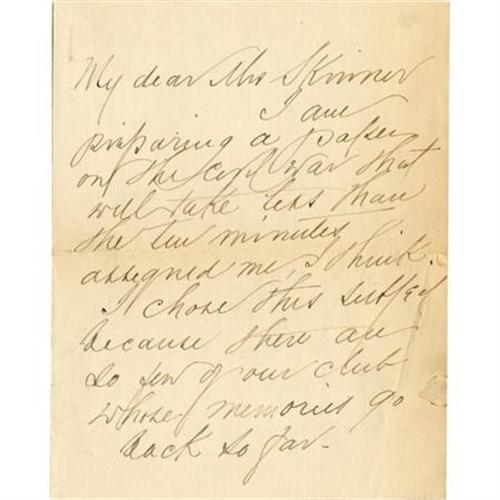 My dear Mrs Skinner
I am
preparing a paper
on the civil war that
will take less than
the ten minutes
assigned me, I think.
I chose this subject
because there are
so few of our club
whose memories go
back so far.